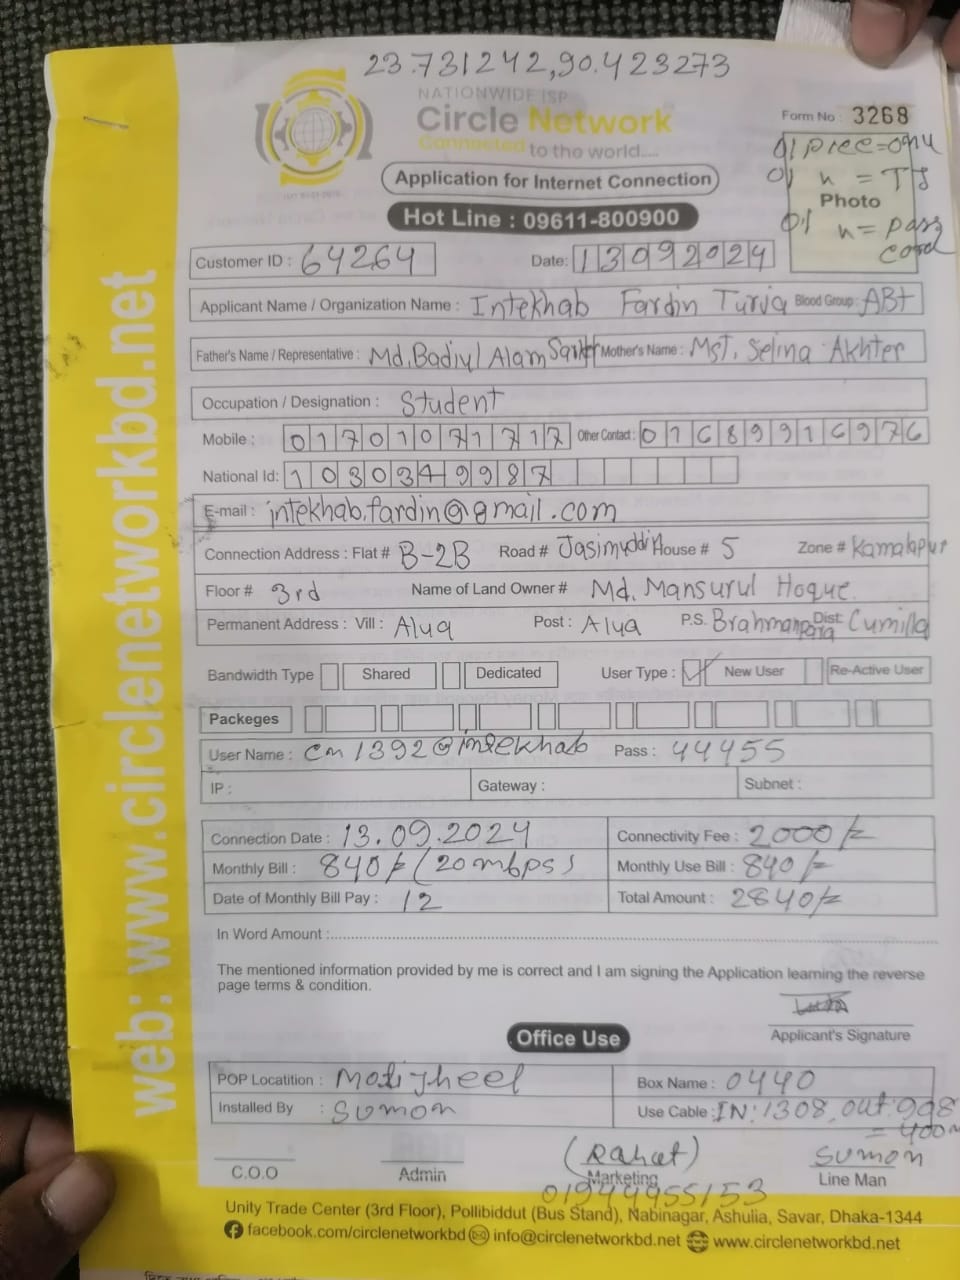 23.731242,90.423273
NATIONWIDE ISP
Circle Network
Connected to the world....
Form No : 3268
01 piec = onu
01 n = TJ
Photo
01 n = pass cord
Application for Internet Connection
Hot Line : 09611-800900
Customer ID : 64264 Date: 13092024
Applicant Name / Organization Name : Intekhab Fardin Turja Blood Group : AB+
Father's Name / Representative : Md. Badiul Alam Sarker Mother's Name : Mst. Selina Akhter
Occupation / Designation : Student
Mobile : 01701071717 Other Contact : 01689916976
National Id: 1030349987
E-mail : intekhab.fardin@gmail.com
Connection Address : Flat # B-2B Road # Jasimuddin House # 5 Zone # Kamalapur
Floor # 3rd Name of Land Owner # Md. Mansurul Hoque.
Permanent Address : Vill : Alua Post : Alua P.S. Brahmanpara Dist: Cumilla
Bandwidth Type Shared Dedicated User Type : ✓ New User Re-Active User
Packeges
User Name : cn1392@intekhab Pass : 44455
IP : Gateway : Subnet :
Connection Date : 13.09.2024 Connectivity Fee : 2000/-
Monthly Bill : 840/- (20mbps) Monthly Use Bill : 840/-
Date of Monthly Bill Pay : 12 Total Amount : 2840/-
In Word Amount :
The mentioned information provided by me is correct and I am signing the Application learning the reverse
page terms & condition.
Applicant's Signature
Office Use
POP Locatition : Motijheel Box Name : 0440
Installed By : Sumon Use Cable : IN: 1308, out: 998
= 400m
(Rahat) Sumon
C.O.O Admin Marketing Line Man
01944955153
Unity Trade Center (3rd Floor), Pollibiddut (Bus Stand), Nabinagar, Ashulia, Savar, Dhaka-1344
facebook.com/circlenetworkbd info@circlenetworkbd.net www.circlenetworkbd.net
web: www.circlenetworkbd.net